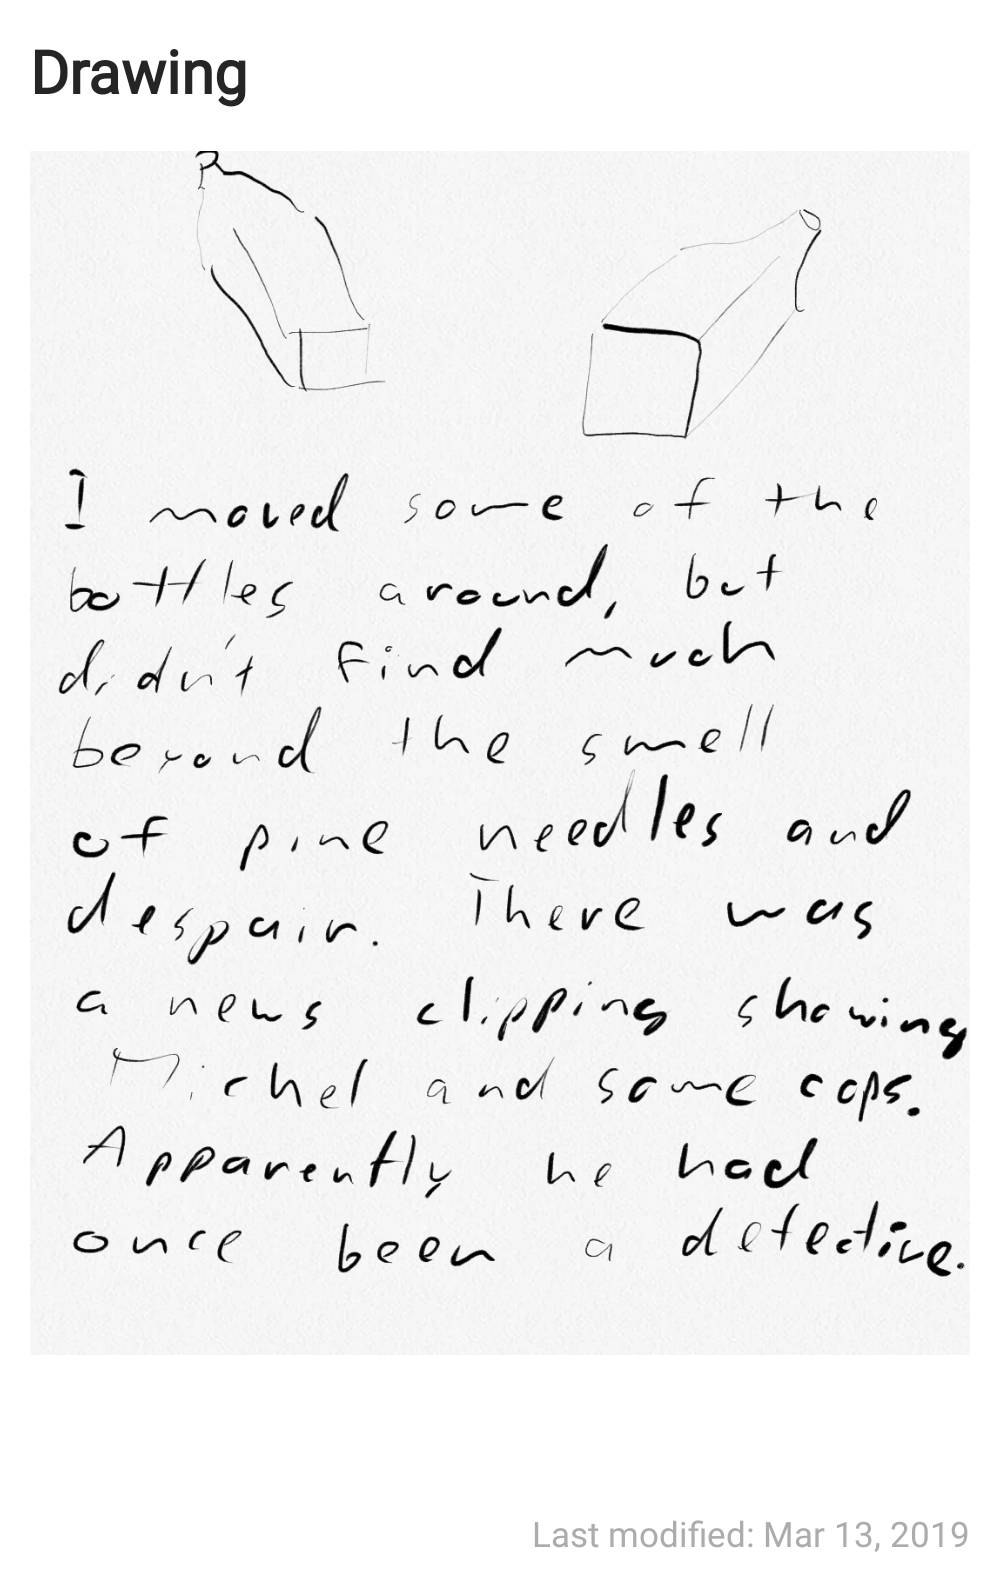 Drawing
I moved some of the
bottles around, but
didn't find much
beyond the smell
of pine needles and
despair. There was
a news clipping showing
Michel and some cops.
Apparently he had
once been a detective.
Last modified: Mar 13, 2019